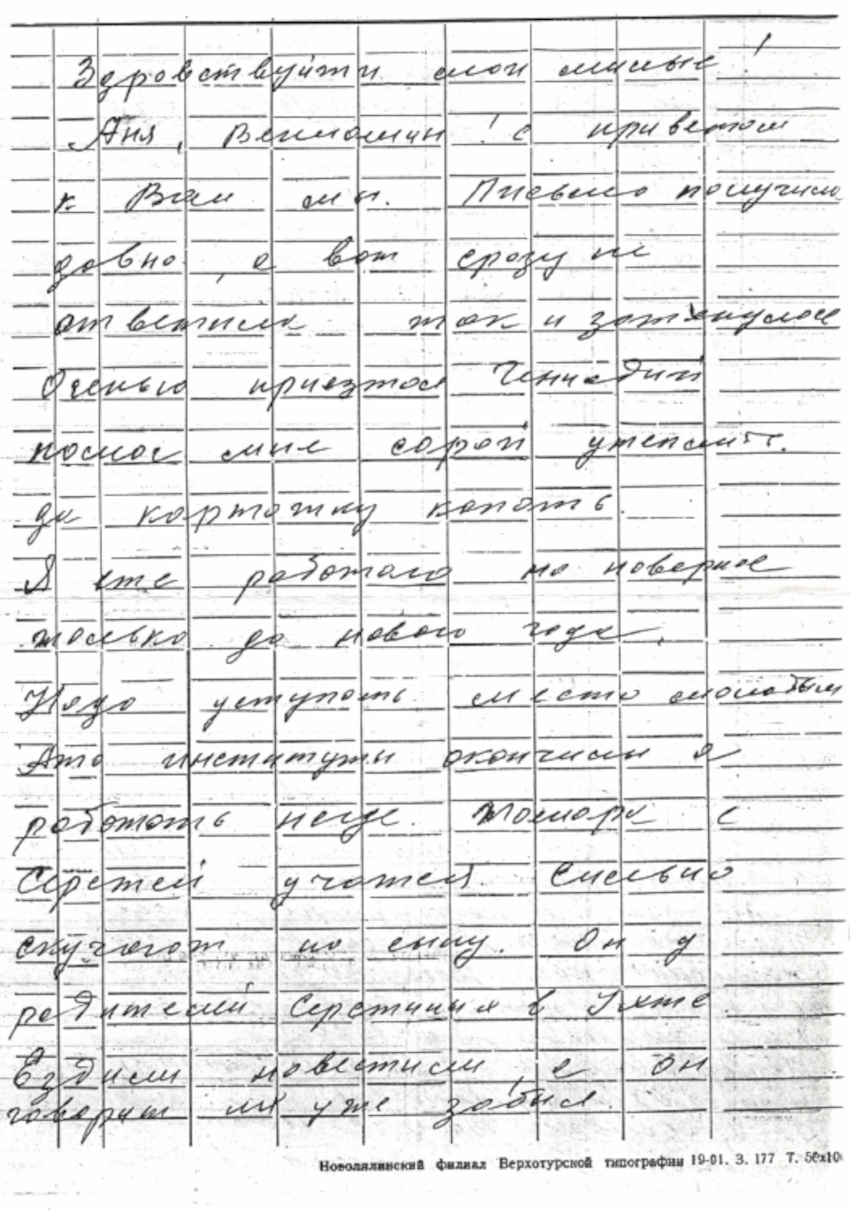 Здровствуйти мои милые!
Аня, Вениомин! с приветом
к Вам мы. Письмо получила
довно, а вот срозу не
ответила ток и зотянулось
Осенью приезжол Геннодий
помог мне сорой утеплить.
да картошку копоть.
Я еже роботаю но поверное
только до нового года.
Нодо уступоть место молодым
Ато институты окончили а
робототь негде. Томора с
Сережей учатся. Сильно
скучоют по сыну. Он у
родителей Сережиных в Ухте.
Ездили повестили, а он
говорит их уже зобыл.
Новолялинский филиал Верхотурской типографии 19-01. З. 177 Т. 50х10